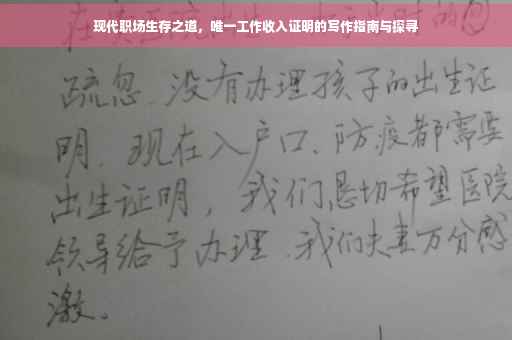 现代职场生存之道，唯一工作收入证明的写作指南与探寻
疏忽、没有办理孩子的出生证
明、现在入户口、防疫都需要
出生证明，我们恳切希望医院
领导给予办理、我们夫妻万分感
激。